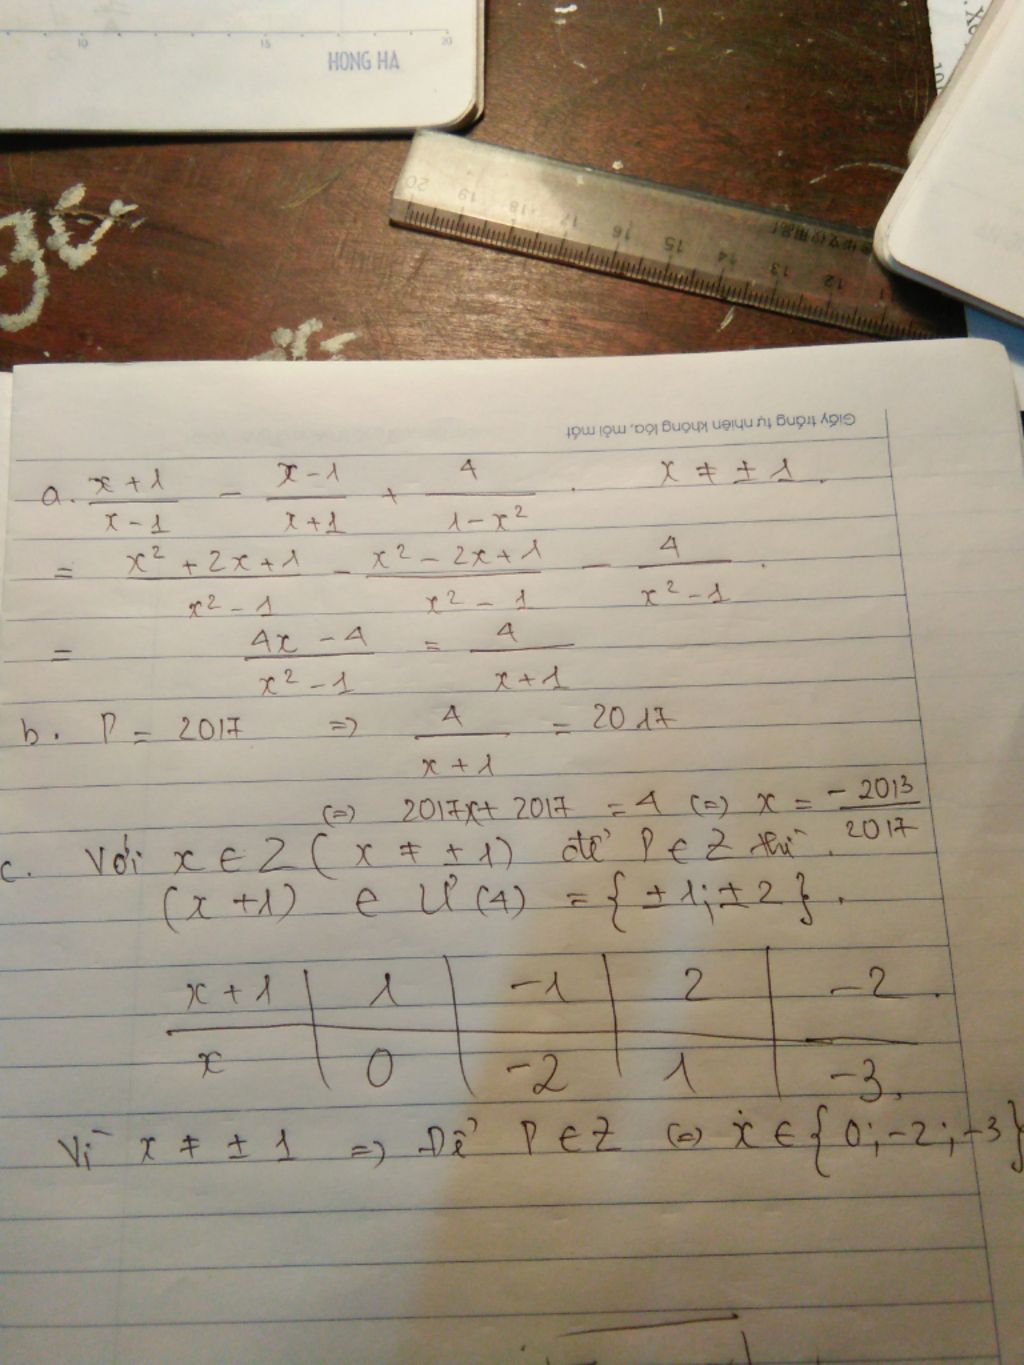 10 15 20
HONG HA
20 19 18 17 16 15 14 13 12 11
Giấy trắng tự nhiên không lóa, mỏi mắt
a. \frac{x+1}{x-1} - \frac{x-1}{x+1} + \frac{4}{1-x^2} . x ≠ ±1.
= \frac{x^2+2x+1}{x^2-1} - \frac{x^2-2x+1}{x^2-1} - \frac{4}{x^2-1} .
= \frac{4x-4}{x^2-1} = \frac{4}{x+1}
b. P = 2017 => \frac{4}{x+1} = 2017
(=) 2017x + 2017 = 4 (=) x = \frac{-2013}{2017}
c. Với x ∈ Z ( x ≠ ±1) để P ∈ Z thì .
(x+1) ∈ Ư(4) = { ±1; ±2 } .
x+1 | 1 | -1 | 2 | -2 .
x | 0 | -2 | 1 | -3.
Vì x ≠ ±1 => Để P ∈ Z (=) x ∈ { 0; -2; -3 }